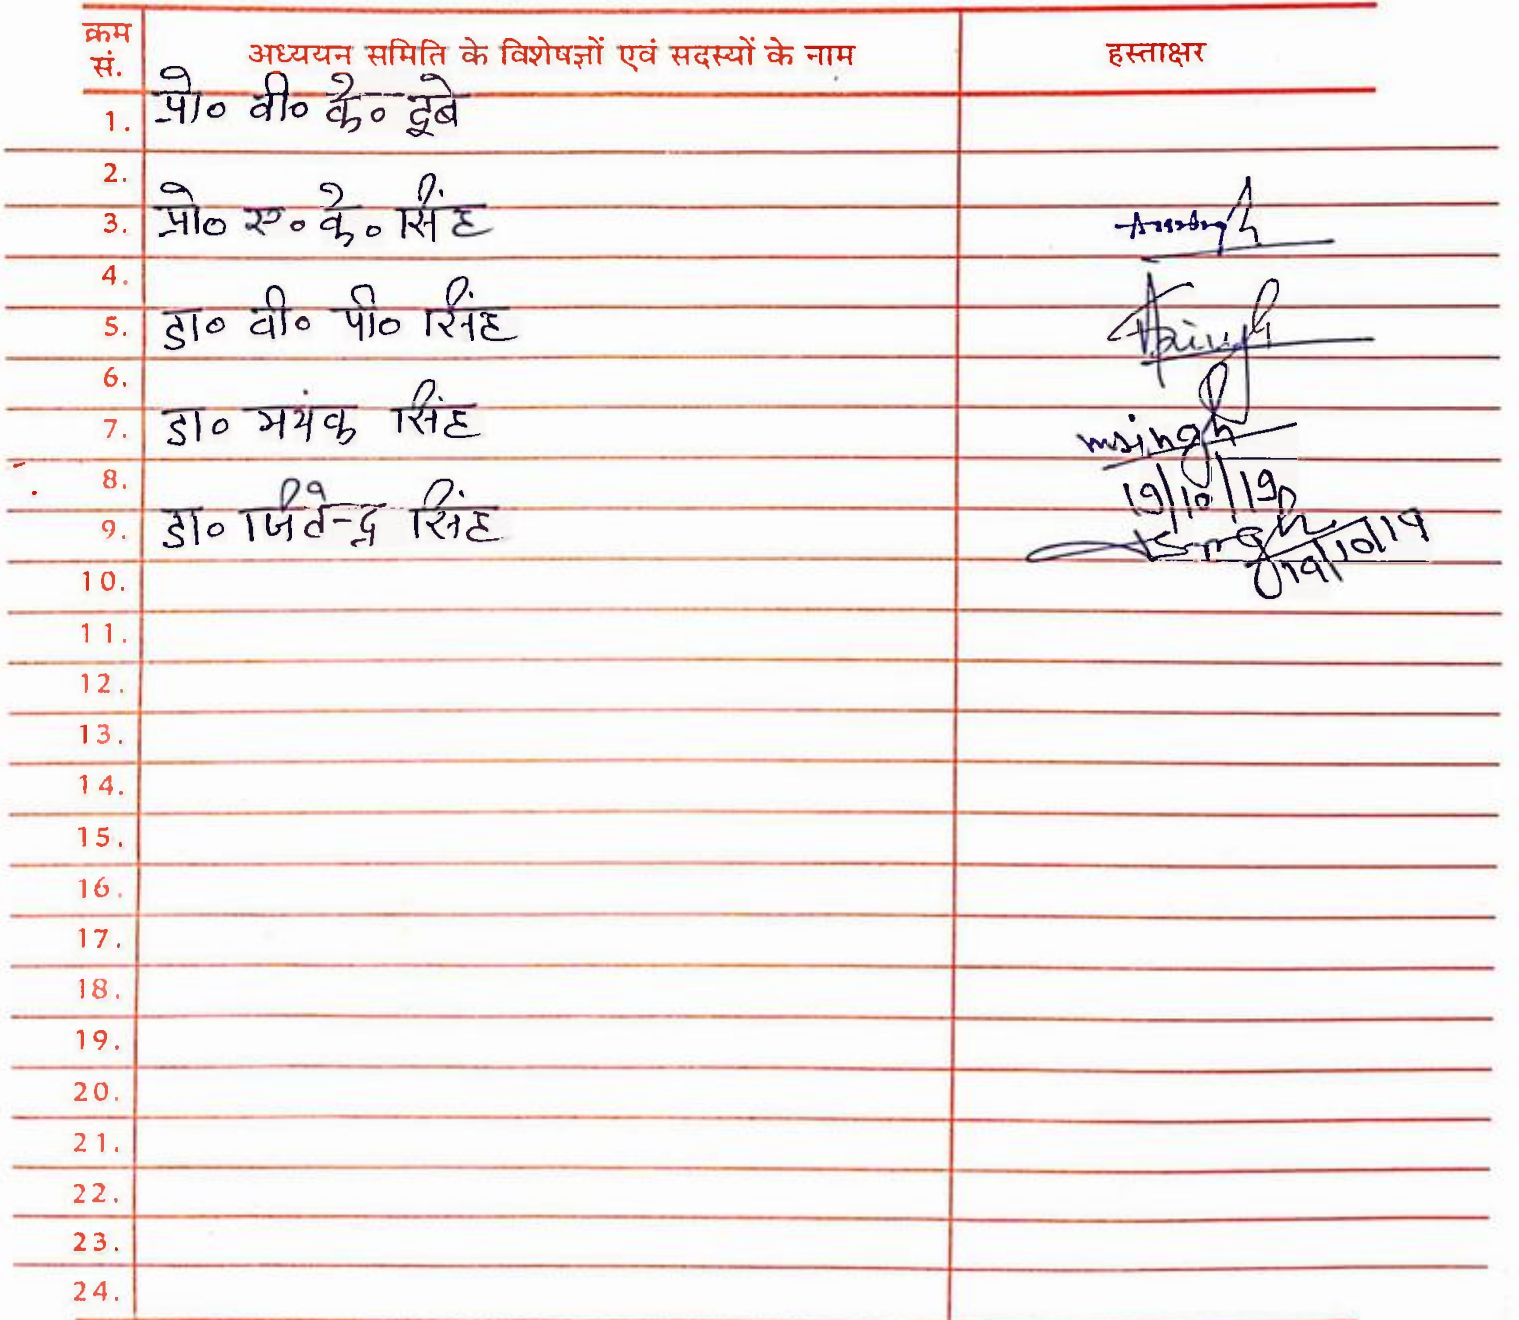 क्रम सं. अध्ययन समिति के विशेषज्ञों एवं सदस्यों के नाम हस्ताक्षर
1. प्रो० वी० के० दूबे
2.
3. प्रो० ए० के० सिंह
4.
5. डा० वी० पी० सिंह
6.
7. डा० मयंक सिंह msingh
8. 19/10/19
9. डा० जितेन्द्र सिंह 19/10/19
10.
11.
12.
13.
14.
15.
16.
17.
18.
19.
20.
21.
22.
23.
24.